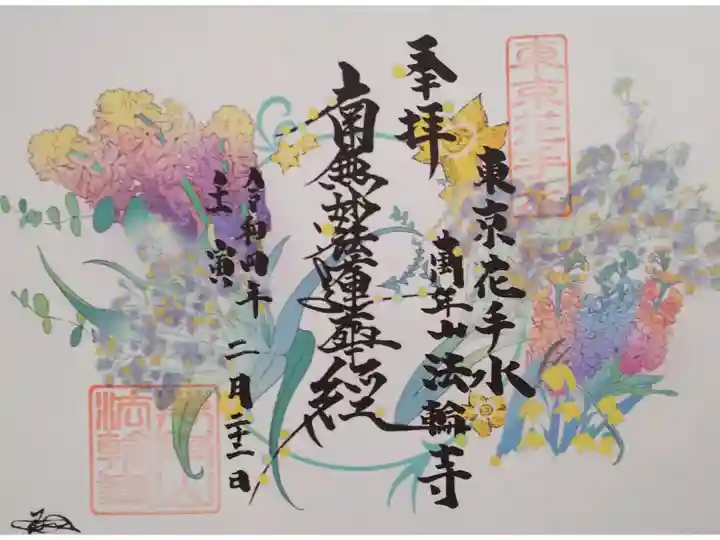 東京花手水
東京花手水
奉拝
萬年山法輪寺
南無妙法蓮華経
令和四年
壬寅
二月二十二日